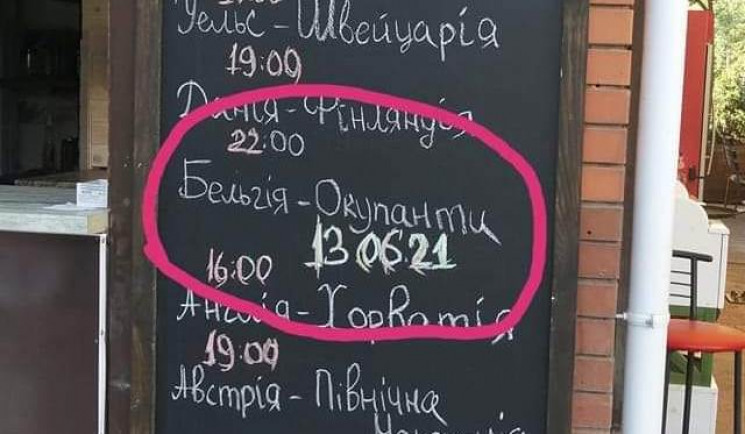 Уельс-Швейцарія
19:00
Данія-Фінляндія
22:00
Бельгія-Окупанти
13.06.21
16:00
Англія-Хорватія
19:00
Австрія-Північна